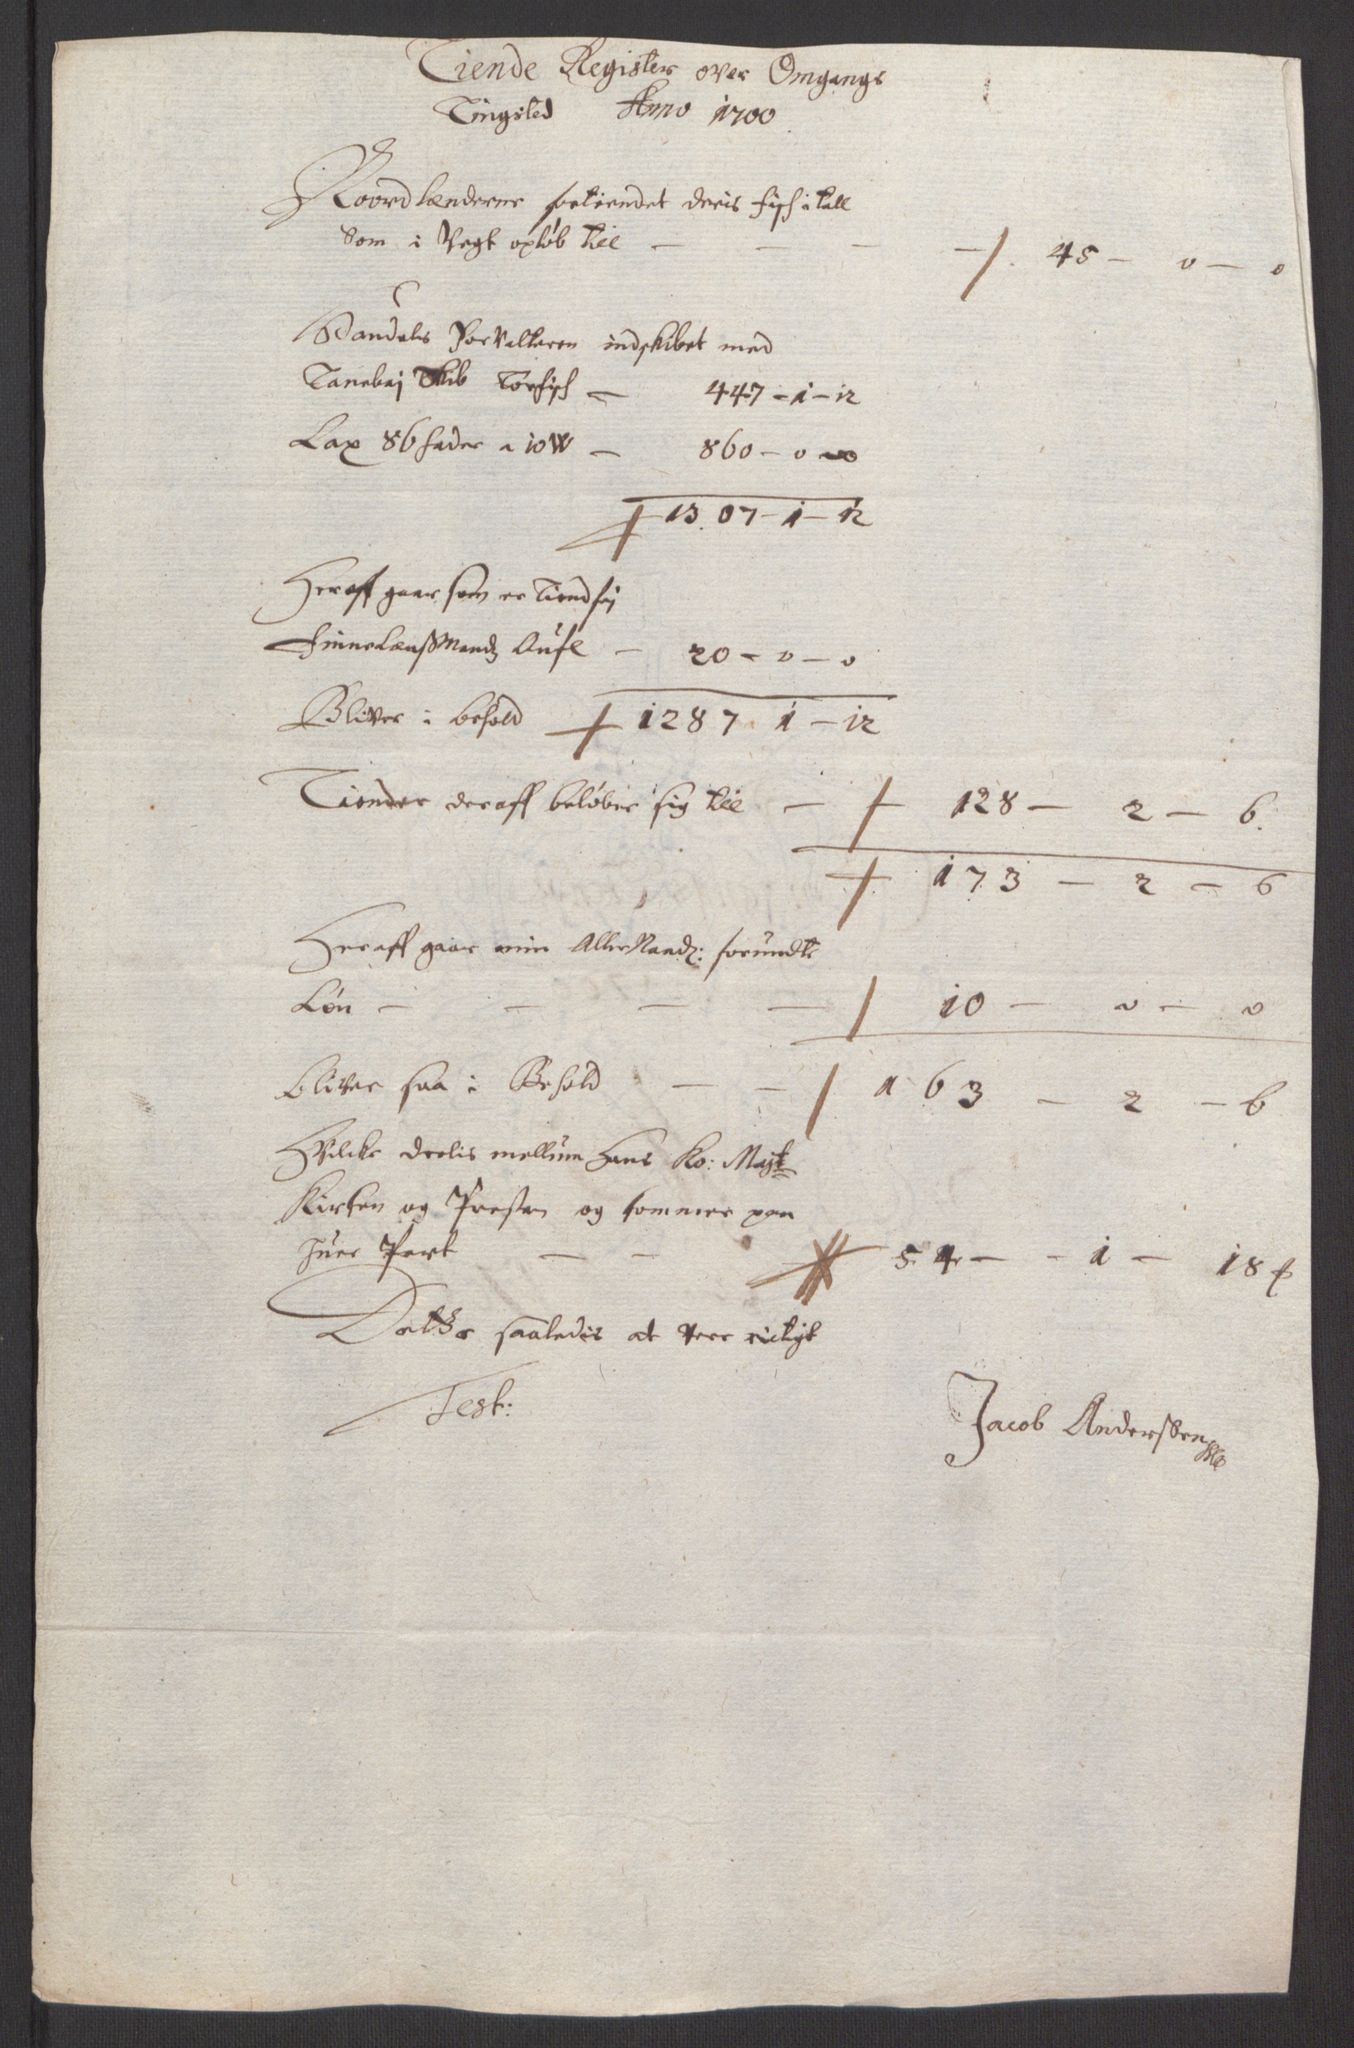 Tiende Register over Omgangs
Tingsted Anno 1700
Noordlænderne fortiendet deris fisch i tall
Som i Vegt opløb till — — — — 45 — 0 — 0
Handels Forvalteren indskibet med
Tanebaj Skib Tørfisch — 447 - 1 - 12
Lax 86 fader a 10 W — 860 - 0 - 0
1307 - 1 - 12
Her aff gaar som er Tiendfrj
Finnelænssmandz Aufl — 20 - 0 - 0
Bliver i behold 1287 1 - 12
Tiender der aff beløber sig till — 128 — 2 — 6.
173 — 2 — 6
Her aff gaar min Aller Naadz: forundte
Løn — — — — 10 — 0 — 0
Bliver saa i Behold — — 163 — 2 — 6
Hvilcke deelis mellum Hans Ko: Maytt
Kirken og Presten og kommer paa
huer Part — — 54 — 1 — 18
Dette saaledis at vere rictigt
Test:
Jacob Anderssen